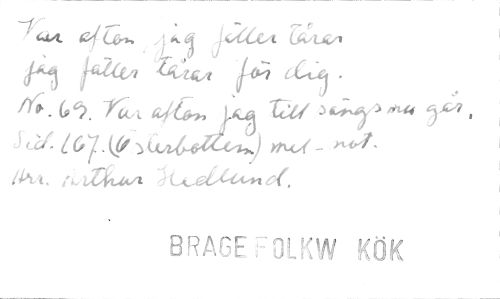 Var afton jag fäller tårar
jag fäller tårar för dig.
No. 69. Var afton jag till sängs nu går.
Sid. 167. (Österbotten) mel-not.
Arr. Arthur Hedlund.
BRAGE FOLKW KÖK